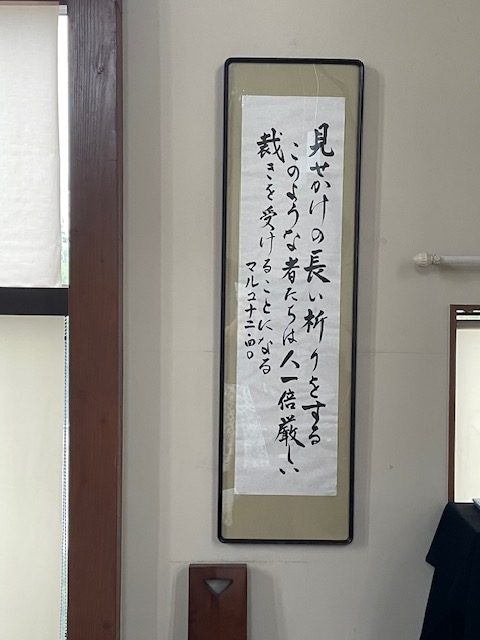 見せかけの長い祈りをする
このような者たちは人一倍厳しい
裁きを受けることになる
マルコ十二・四〇